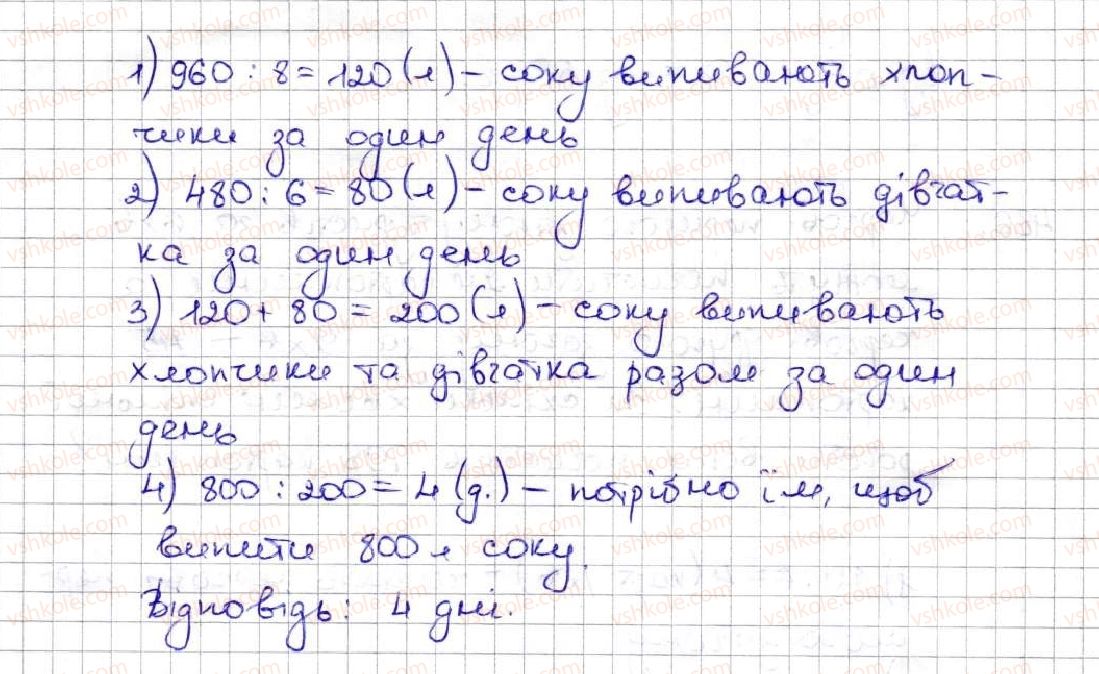 1) 960 : 8 = 120 (л) – соку випивають хлоп-
чики за один день
2) 480 : 6 = 80 (л) – соку випивають дівчат-
ка за один день
3) 120 + 80 = 200 (л) – соку випивають
хлопчики та дівчатка разом за один
день
4) 800 : 200 = 4 (д.) – потрібно їм, щоб
випити 800 л соку.
Відповідь: 4 дні.